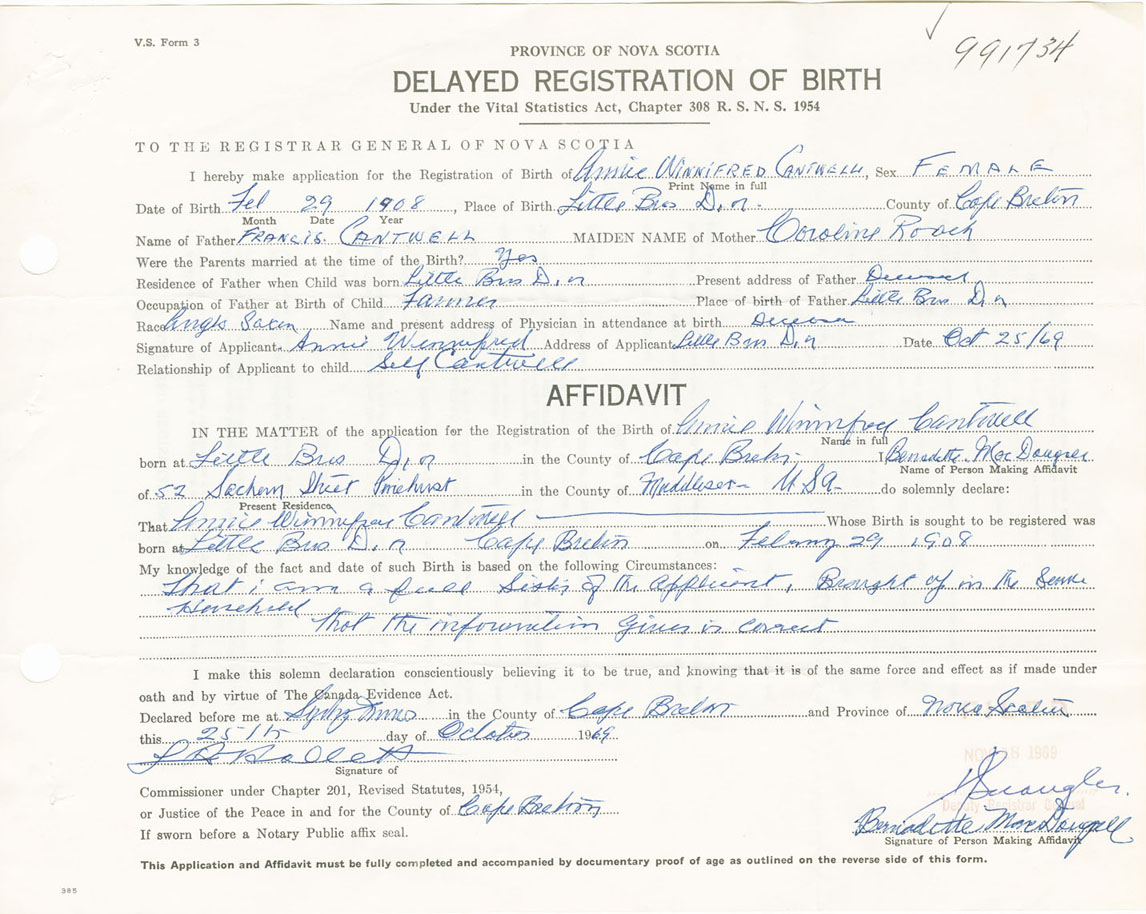 V.S. Form 3
991734
PROVINCE OF NOVA SCOTIA
DELAYED REGISTRATION OF BIRTH
Under the Vital Statistics Act, Chapter 308 R. S. N. S. 1954
TO THE REGISTRAR GENERAL OF NOVA SCOTIA
I hereby make application for the Registration of Birth of Annie WINNIFRED CANTWELL, Sex FEMALE
Print Name in full
Date of Birth Feb 29 1908, Place of Birth Little Bras D, or County of Cape Breton
Month Date Year
Name of Father FRANCIS CANTWELL MAIDEN NAME of Mother Caroline Roach
Were the Parents married at the time of the Birth? Yes
Residence of Father when Child was born Little Bras D, or Present address of Father Deceased
Occupation of Father at Birth of Child Farmer Place of birth of Father Little Bras D, or
Race Anglo Saxon Name and present address of Physician in attendance at birth
Signature of Applicant Annie Winnifred Address of Applicant Little Bras D, or Date Oct 25/69
Relationship of Applicant to child Self Cantwell
AFFIDAVIT
IN THE MATTER of the application for the Registration of the Birth of Annie Winnifred Cantwell
Name in full
born at Little Bras D, or in the County of Cape Breton I Bernadette MacDougall
Name of Person Making Affidavit
of 52 Sachem Street in the County of U.S.A. do solemnly declare:
Present Residence
That Annie Winnifred Cantwell Whose Birth is sought to be registered was
born at Little Bras D, or Cape Breton on February 29 1908
My knowledge of the fact and date of such Birth is based on the following Circumstances:
That i am a full Sister of the applicant, Brought up in the Same
Household
That the information given is correct
I make this solemn declaration conscientiously believing it to be true, and knowing that it is of the same force and effect as if made under
oath and by virtue of The Canada Evidence Act.
Declared before me at Sydney Mines in the County of Cape Breton and Province of Nova Scotia
this 25th day of October 1969
NOV 18 1969
Signature of
Deputy Registrar General
Commissioner under Chapter 201, Revised Statutes, 1954,
or Justice of the Peace in and for the County of Cape Breton
Bernadette MacDougall
If sworn before a Notary Public affix seal.
Signature of Person Making Affidavit
This Application and Affidavit must be fully completed and accompanied by documentary proof of age as outlined on the reverse side of this form.
385